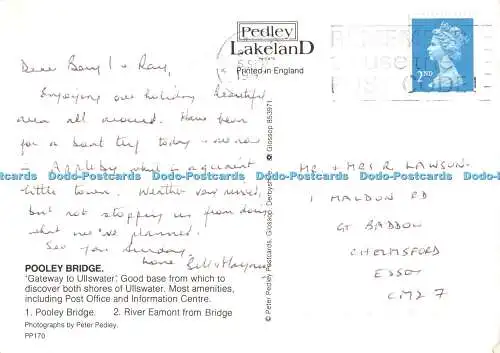 Pedley
LakelanD
Printed in England
2ND
Dear Beryl + Ray,
Enjoying our holiday beautiful
area all around. Have been
for a boat trip today + now
in Appleby what a quaint
little town. Weather very mixed,
but not stopping us from doing
what we've planned.
See you Sunday.
Love
MR + MRS R LAWSON.
1 MALDON RD
GT BADDOW
CHELMSFORD
ESSEX
CM2 7
Dodo-Postcards Dodo-Postcards Dodo-Postcards Dodo-Postcards Dodo-Postcards
© Peter Pedley Postcards, Glossop, Derbyshire. © Glossop 853971
POOLEY BRIDGE.
'Gateway to Ullswater'. Good base from which to
discover both shores of Ullswater. Most amenities,
including Post Office and Information Centre.
1. Pooley Bridge. 2. River Eamont from Bridge
Photographs by Peter Pedley.
PP170